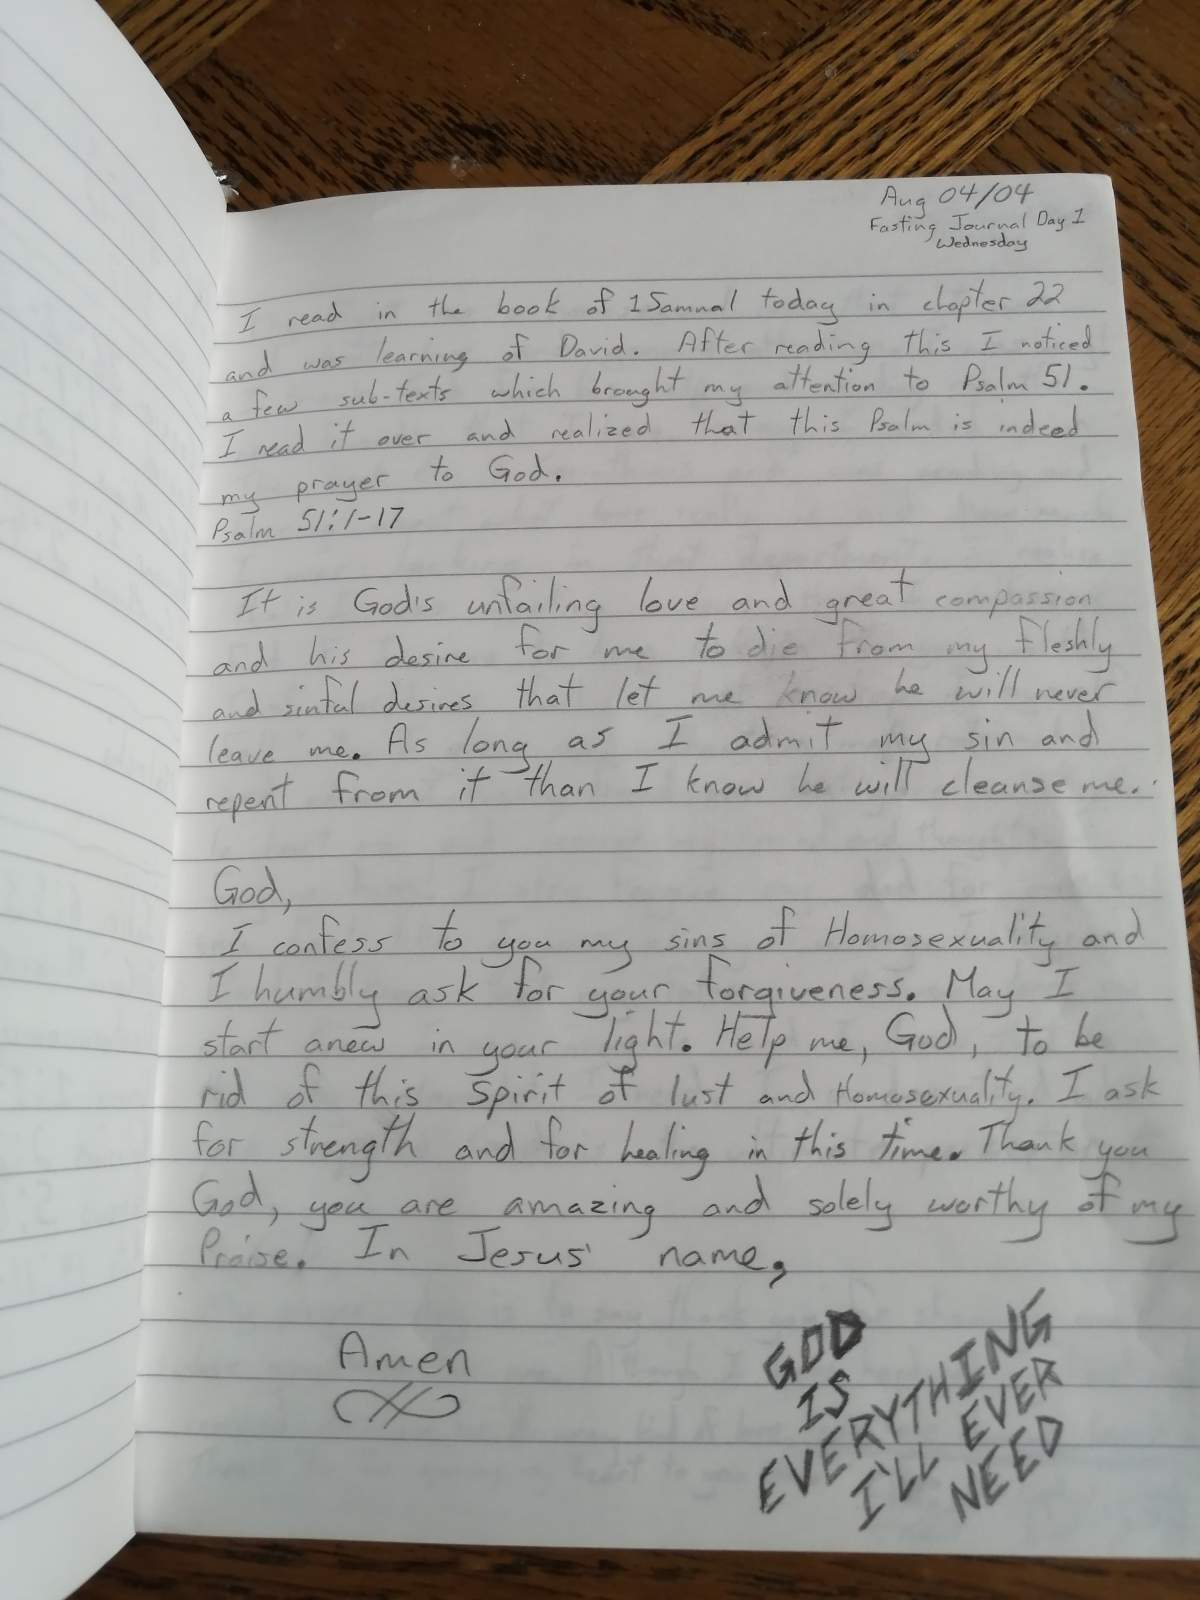 Aug 04/04
Fasting Journal Day 1
Wednesday
I read in the book of 1 Samual today in chapter 22
and was learning of David. After reading this I noticed
a few sub-texts which brought my attention to Psalm 51.
I read it over and realized that this Psalm is indeed
my prayer to God.
Psalm 51:1-17
It is God's unfailing love and great compassion
and his desire for me to die from my fleshly
and sinful desires that let me know he will never
leave me. As long as I admit my sin and
repent from it than I know he will cleanse me.
God,
I confess to you my sins of Homosexuality and
I humbly ask for your forgiveness. May I
start anew in your light. Help me, God, to be
rid of this Spirit of lust and Homosexuality. I ask
for strength and for healing in this time. Thank you
God, you are amazing and solely worthy of my
Praise. In Jesus' name,
Amen
GOD
IS
EVERYTHING
I'LL EVER
NEED